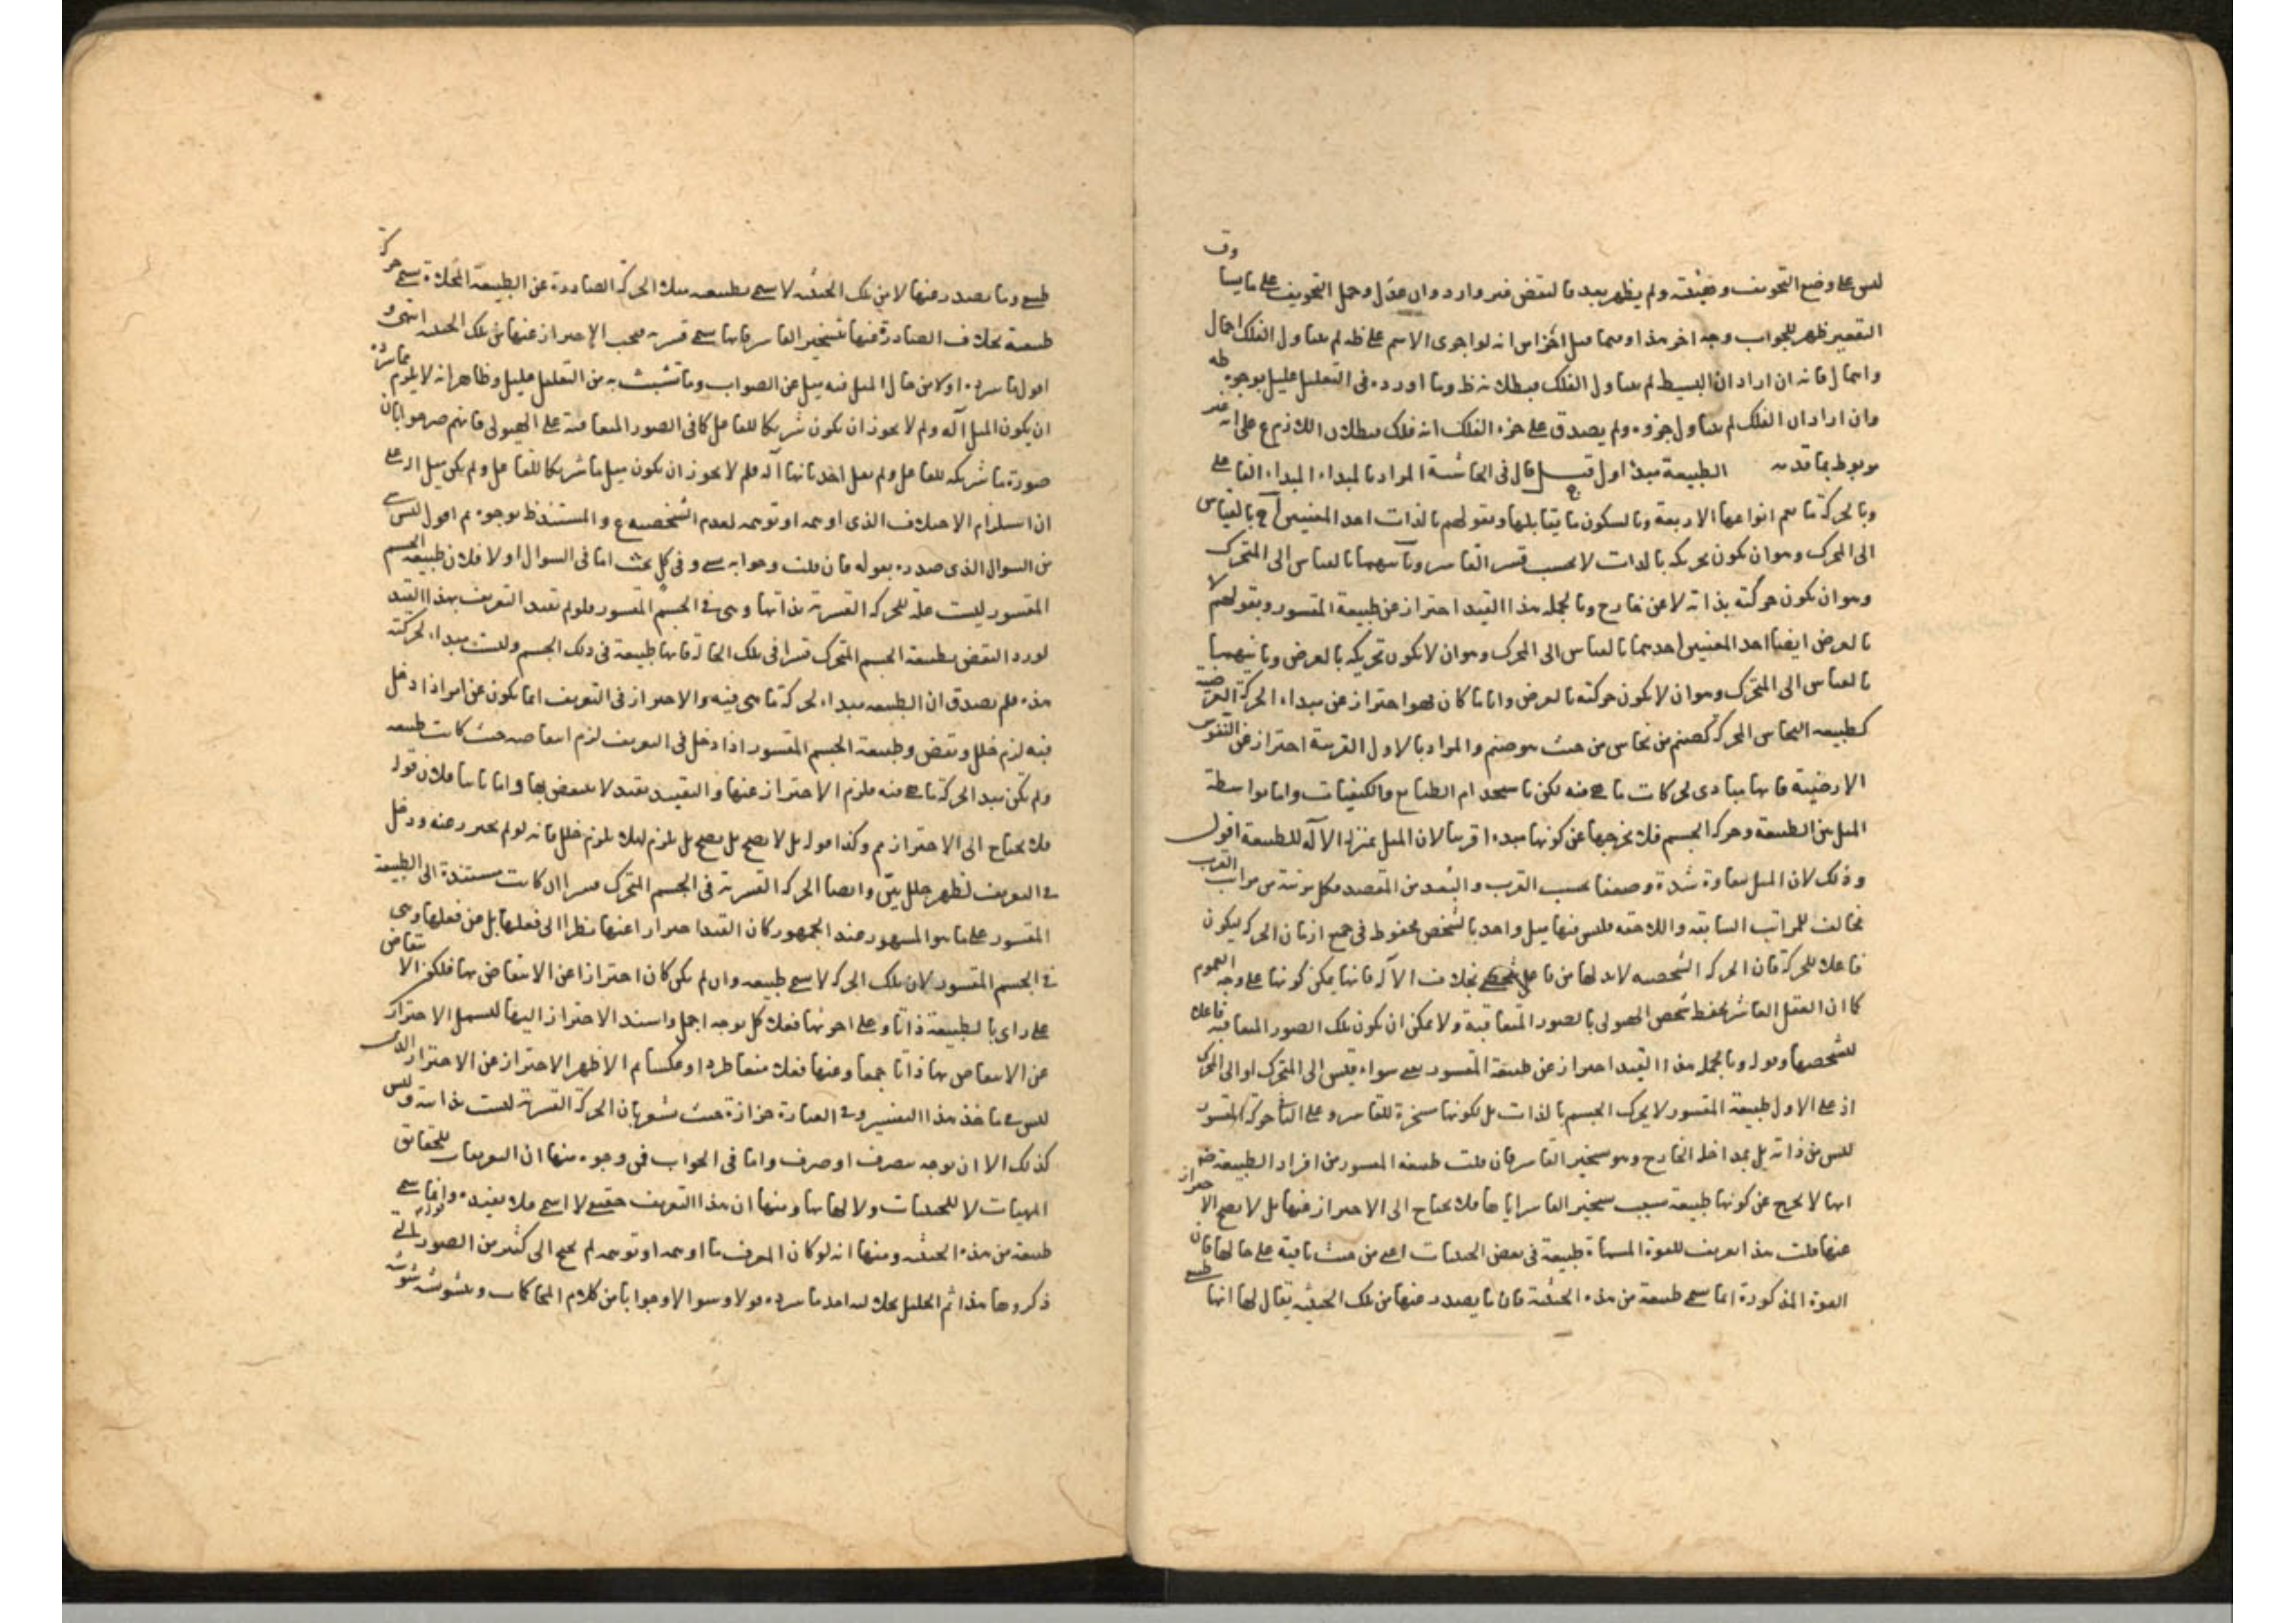 ليس على وضع التجويف وهيئته ولم يظهر بعد فالنقض غير وارد وان عدل وحمل التجويف على ما يساوق
التقعير ظهر للجواب وجه اخر هذا وههنا انه لو اجرى الاسم على لم يتناول الفلك اجمال
واهمال فانه ان اراد ان البسيط لم يتناول الفلك فبطلانه ظ وما اورده في التعليل عليل بوجوه
وان اراد ان الفلك لم يتناول جزوه ولم يصدق على جزء الفلك انه فلك فبطلان اللازم ع على انه غير
مربوط بما قدمه الطبيعة مبدأ اول قيل قال في الحاشية المراد بالمبداء المبداء الفاعلي
وبالحركة ما يعم انواعها الاربعة وبالسكون ما يقابلها وبقولهم بالذات احد المعنيين آ ج بالقياس
الى المحرك وهو ان يكون تحريكه بالذات لا بحسب قسر القاسر وثانيهما بالقياس الى المتحرك
وهو ان يكون حركته بذاته لا عن خارج وبالجملة هذا القيد احتراز عن طبيعة المقسور وبقولهم لا
بالعرض ايضا احد المعنيين احدهما بالقياس الى المحرك وهو ان لا يكون تحريكه بالعرض وثانيهما
بالقياس الى المتحرك وهو ان لا يكون حركته بالعرض وايا ما كان فهو احتراز عن مبداء الحركة العرضية
كطبيعة النحاس المحركة كصنم من نحاس من حيث هو صنم والمراد بالاول القريب احتراز عن النفوس
الارضية فانها مبادى لحركات ما هي فيه لكن باستخدام الطبايع والكيفيات واما بواسطة
الميل بين الطبيعة وحركة الجسم فلا يخرجها عن كونها مبدء قريبا لان الميل بمنزلة الآلة للطبيعة اقول
وذلك لان الميل يتفاوت شدة وضعفا بحسب القرب والبعد من المقصد فكل مرتبة من مراتب القرب
تخالف للمراتب السابقة واللاحقة فليس فيها ميل واحد بالشخص محفوظ في جميع ازمان الحركة ليكون
فاعلا للحركة فان الحركة الشخصية لا بد لها من فاعل شخصي بخلاف الآلة فانها يمكن كونها على وجه العموم
كما ان العقل العاشر يحفظ شخص الهيولى بالصور المتعاقبة ولا يمكن ان يكون تلك الصور المتعاقبة فاعلا
لشخصها وقوله وبالجملة هذا القيد احتراز عن طبيعة المقسور يعني سواء قيس الى المتحرك او الى المحرك
اذ على الاول طبيعة المقسور لا يحرك الجسم بالذات بل لكونها مسخرة للقاسر وعلى الثاني حركة المقسور
ليس من ذاته بل بمداخلة الخارج وهو تسخير القاسر فان قلت طبيعة المقسور من افراد الطبيعة
انها لا تخرج عن كونها طبيعة بسبب تسخير القاسر اياها فلا يحتاج الى الاحتراز عنها بل لا يصح الاحتراز
عنها قلت هذا تعريف للقوة المسماة طبيعة في بعض الحيثيات اعني من حيث باقية على حالها فان
القوة المذكورة انما سمى طبيعة من هذه الحيثية فان ما يصدر عنها من تلك الحيثية يقال لها انها طبيعي
طبيعي وما يصدر عنها لا من تلك الحيثية لا يسمى بطبيعية فتلك الحركة الصادرة عن الطبيعة المخلاة يسمى حركة
طبيعية بخلاف الصادرة عنها بتسخير القاسر فانها يسمى قسرية فيجب الاحتراز عنها من تلك الحيثية انتهى و
اقول ما سرده اولا من حال الميل فيه ميل عن الصواب وما تشبث به من التعليل عليل وظاهر انه لا يلزم مما سرده
ان يكون الميل آلة ولم لا يجوز ان يكون شريكا للفاعل كما في الصور المتعاقبة على الهيولى فانهم صرحوا بان
صورة ما شريكة للفاعل ولم يقل احد بانها آلة فلم لا يجوز ان يكون ميل ما شريكا للفاعل ولم يكن ميل آلة على
ان استلزام الاختلاف الذي اوهمه او توهمه لعدم الشخصية ع والمستند ظ بوجوه ثم اقول ليس
من السوال الذي صدره بقوله فان قلت وجوابه شي وفي كل بحث اما في السوال اولا فلان طبيعة الجسم
المقسور ليست علة للحركة القسرية بذاتها وهي في الجسم المقسور فلو لم تقيد التعريف بهذا القيد
لورد النقض بطبيعة الجسم المتحرك قسرا في تلك الحالة فانها طبيعة في ذلك الجسم وليست مبداء لحركته
هذه فلم يصدق ان الطبيعة مبداء لحركة ما هي فيه والاحتراز في التعريف انما يكون عن امر اذا دخل
فيه لزم خلل ونقض وطبيعة الجسم المقسور اذا دخل في التعريف لزم انتقاضه حيث كانت طبيعة
ولم تكن مبدا لحركة ما هي فيه فلزم الاحتراز عنها والتقييد بقيد لا ينتقض بها واما ثانيا فلان قوله
فلا يحتاج الى الاحتراز م وكذا قوله بل لا يصح بل يصح بل يلزم لئلا يلزم خلل فانه لو لم يحترز عنه ودخل
في التعريف لظهر خلل بين وايضا الحركة القسرية في الجسم المتحرك قسرا ان كانت مستندة الى الطبيعة
المقسور على ما هو المشهور عند الجمهور كان القيد احترازا عنها نظرا الى فعلها بل عن فعلها وهي
في الجسم المقسور لان تلك الحركة لا سمى طبيعية وان لم يكن كان احترازا عن الانتقاض بها فلكون الانتقاض
على راى بالطبيعة ذاتا وعلى اخر بها فعلا كل توجه اجمل واسند الاحتراز اليها ليشمل الاحتراز
عن الانتقاض بها ذاتا جمعا وعنها فعلا منعا طردا وعكسا ثم الاظهر الاحتراز عن الاحتراز الذي
ليس في ماخذ هذا التفسير وفي العبارة حزازة حيث يشعر بان الحركة القسرية ليست بذاتية وليس
كذلك الا ان توجه بصرف او صرف واما في الجواب فمن وجوه منها ان التعريفات للحقائق
المهيات لا للحيثيات ولا لها بها ومنها ان هذا التعريف حقيقي لا اسمي فلا يفيده وانما سمى
طبيعة من هذه الحيثية ومنها انه لو كان المعرف ما اوهمه او توهمه لم يحتج الى كثير من الصور التي
ذكروها هذا ثم الخليل بخلاله اخذ ما سرده قولا وسوالا وجوابا من كلام المحاكمات